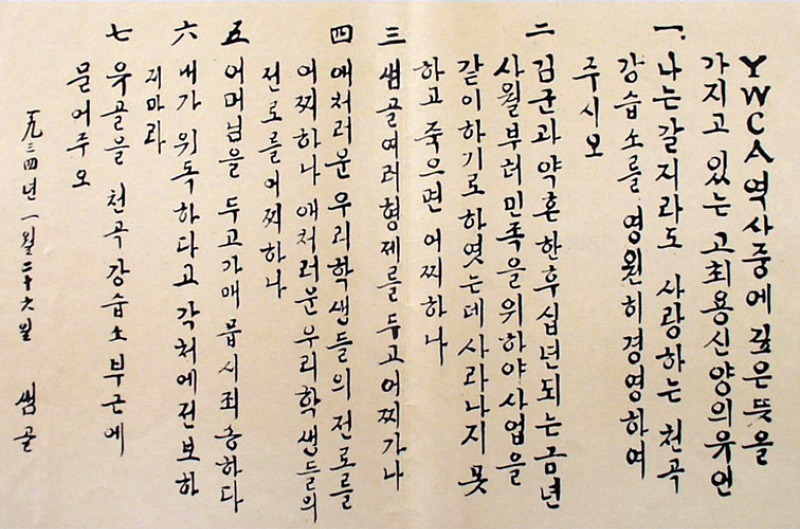 YWCA 역사중에 깊은 뜻을
가지고 있는 고최용신양의 유언
一. 나는 갈지라도 사랑하는 천곡
강습소를 영원히 경영하여
주시오
二 김군과 약혼한 후 십년되는 금년
사월부터 민족을 위하야 사업을
같이하기로 하엿는데 사라나지 못
하고 죽으면 어찌하나
三 샘골 여러형제를 두고 어찌가나
四 애처러운 우리학생들의 전로를
어찌하나 애처러운 우리학생들의
전로를 어찌하나
五 어머님을 두고가매 몹시 죄송하다
六 내가 위독하다고 각처에 전보하
지마라
七 유골을 천곡강습소 부근에
묻어주오
一九三四년 一월 二十六일 샘골